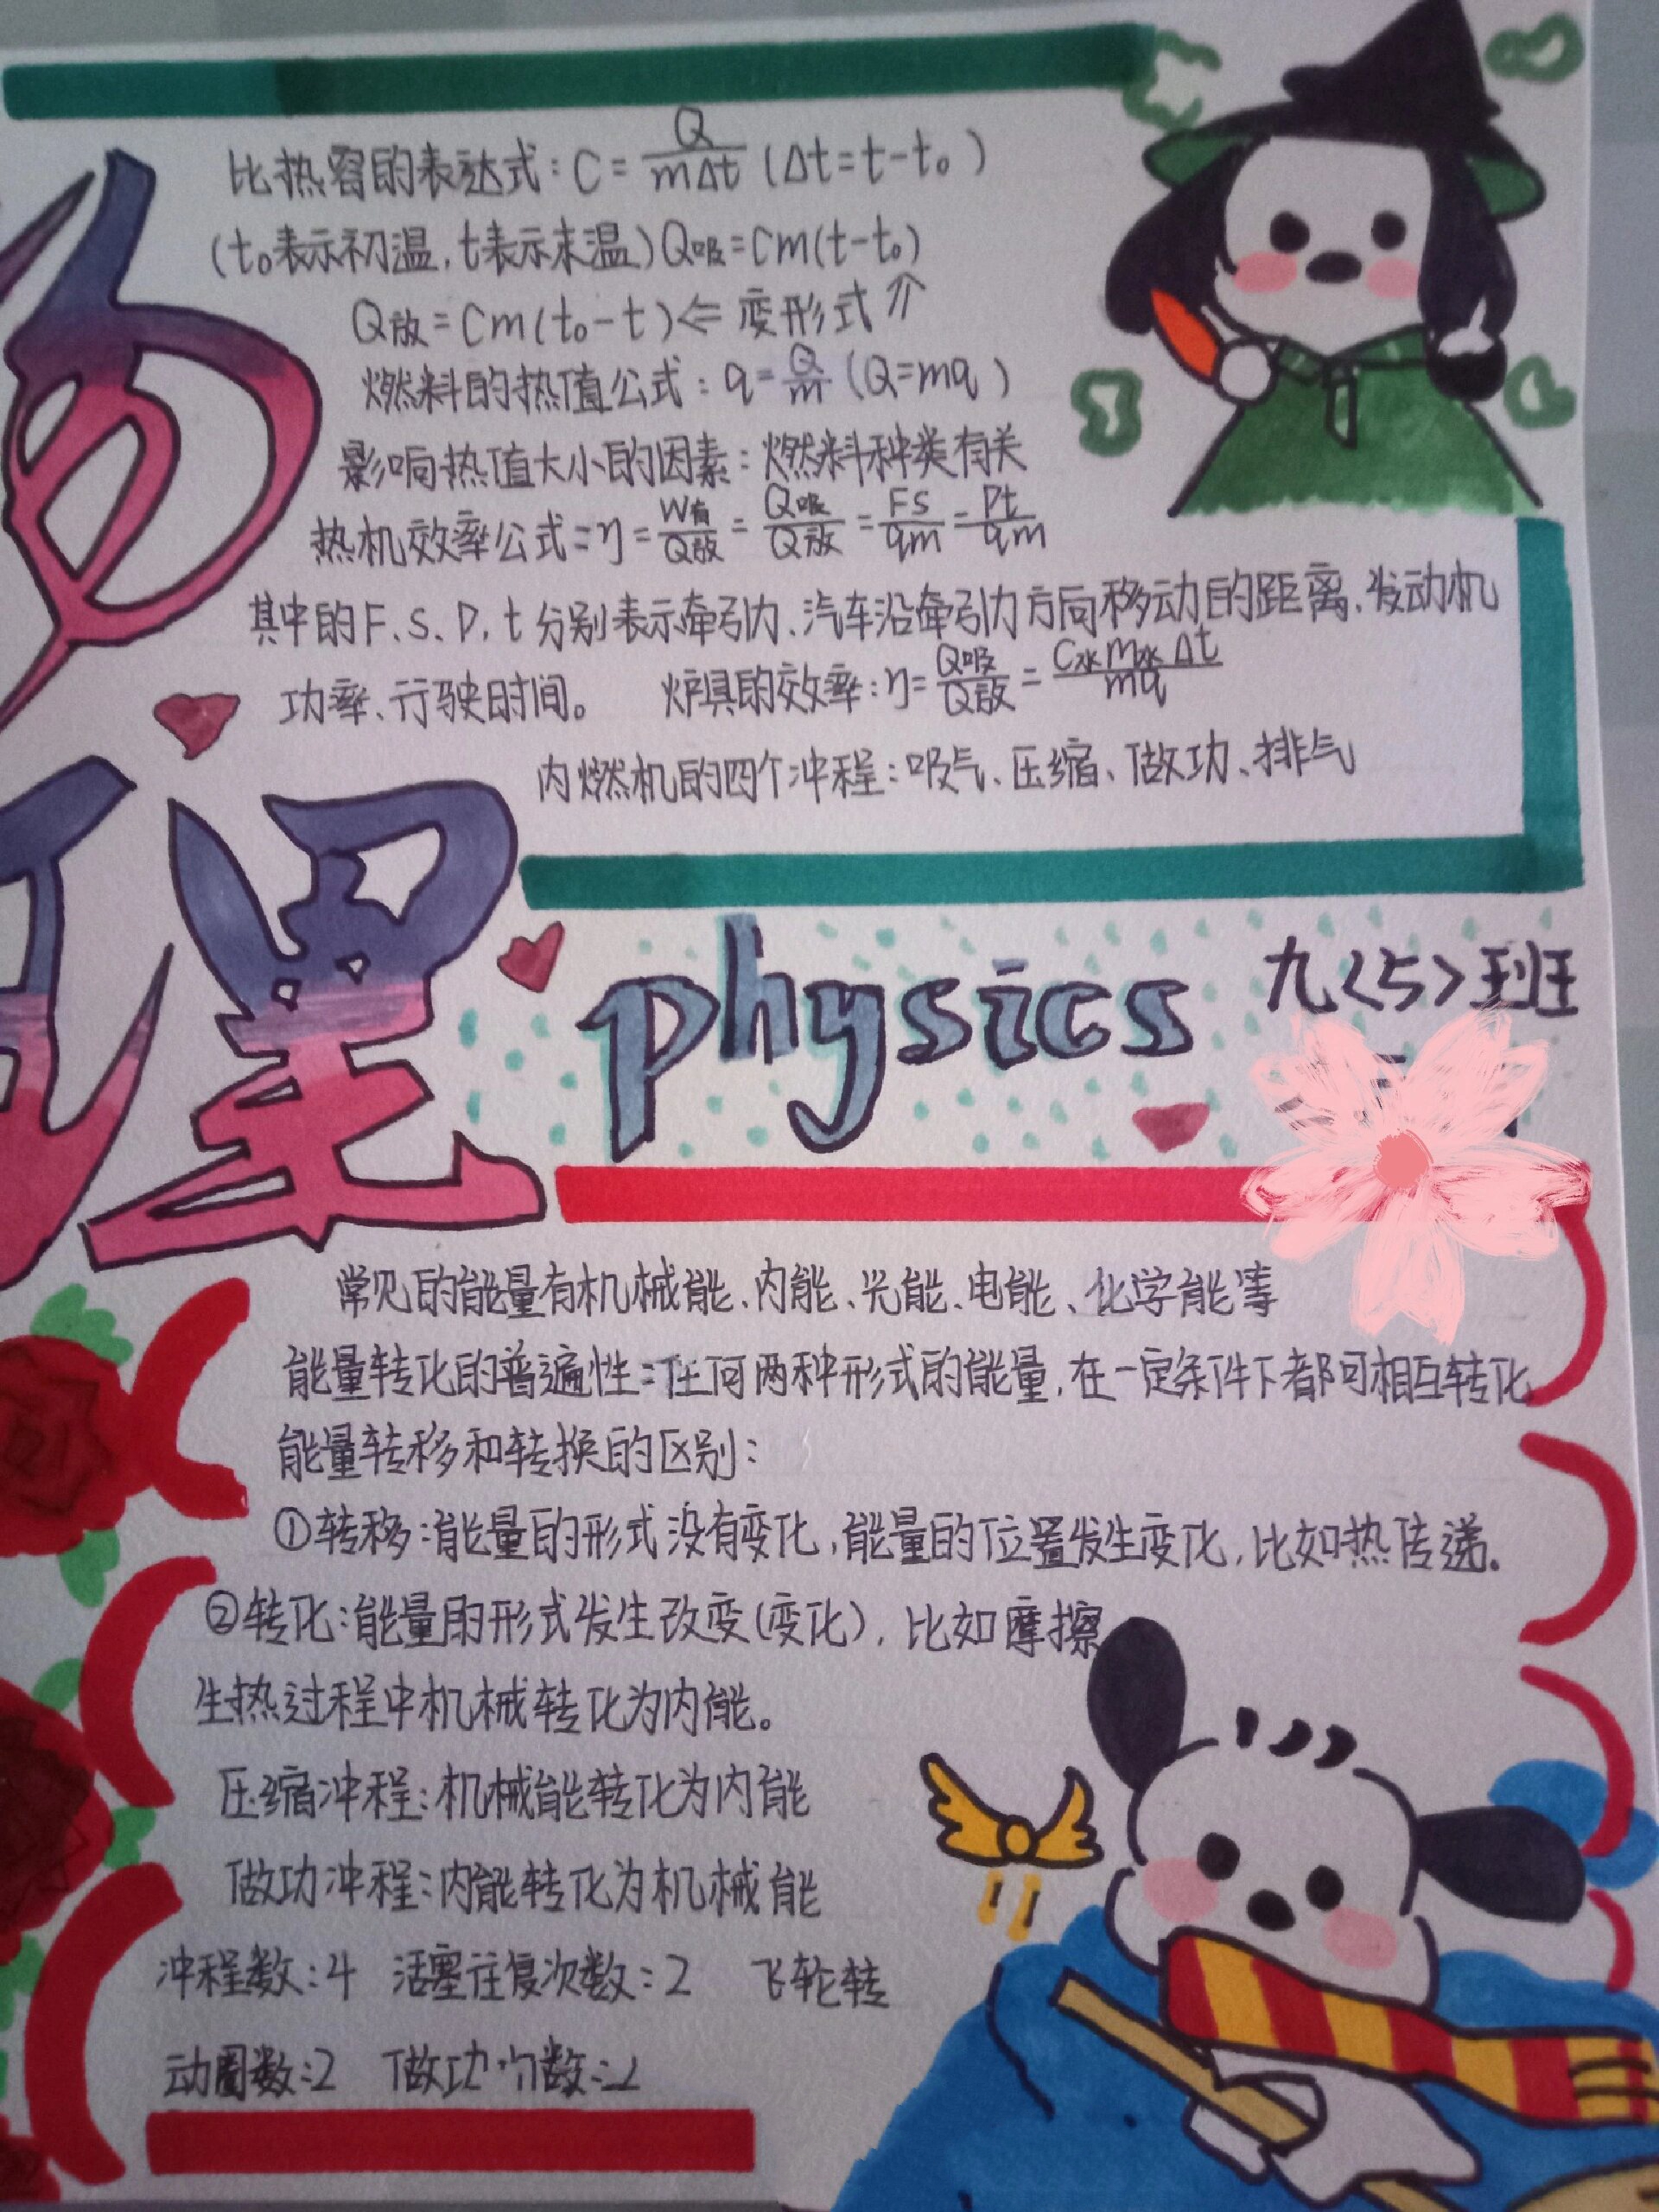 比热容的表达式：C=Q/mΔt（Δt=t-t₀）
（t₀表示初温，t表示末温）Q吸=Cm(t-t₀)
Q放=Cm(t₀-t)⇐变形式⇑
燃料的热值公式：q=Q/m（Q=mq）
影响热值大小的因素：燃料种类有关
热机效率公式=η=W有/Q放=Q吸/Q放=FS/qm=Pt/qm
其中的F、S、P、t分别表示牵引力、汽车沿牵引力方向移动的距离、发动机
功率、行驶时间。 炉具的效率：η=Q吸/Q放=C水m水Δt/mq
内燃机的四个冲程：吸气、压缩、做功、排气
物理
physics
九<5>班
常见的能量有机械能、内能、光能、电能、化学能等
能量转化的普遍性：任何两种形式的能量，在一定条件下都可相互转化
能量转移和转换的区别：
①转移：能量的形式没有变化，能量的位置发生变化，比如热传递。
②转化：能量的形式发生改变（变化），比如摩擦
生热过程中机械转化为内能。
压缩冲程：机械能转化为内能
做功冲程：内能转化为机械能
冲程数：4 活塞往复次数：2 飞轮转
动圈数：2 做功 数：